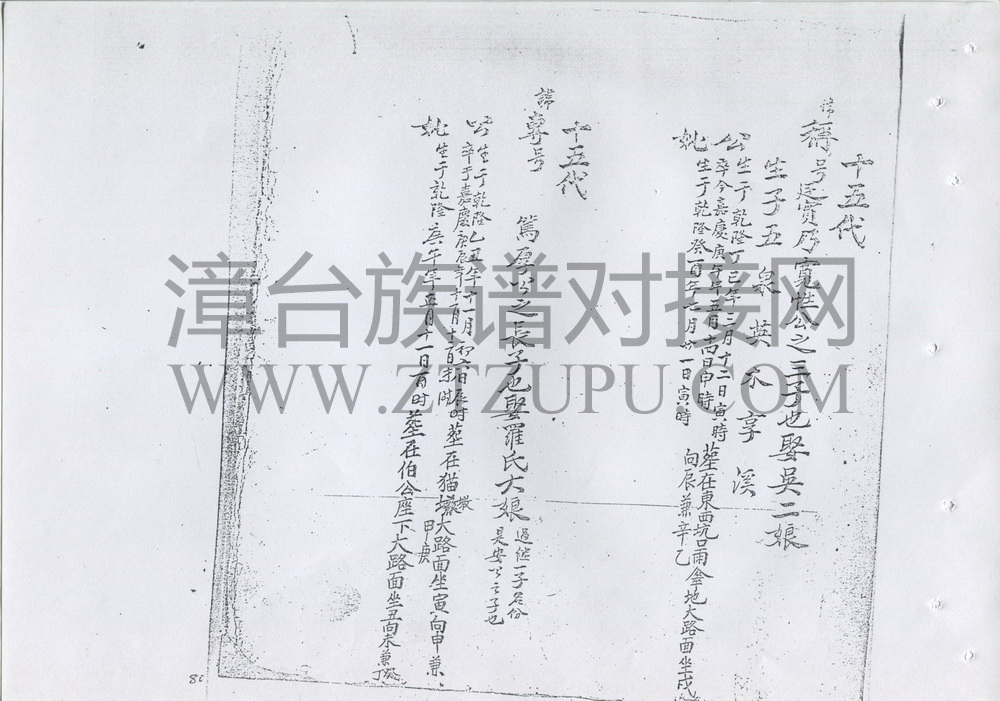 十五代
諱稱号廷實乃寬惟公之三子也娶吳二娘
生子五 泉 英 不 享 溪
公生于乾隆丁巳年三月十二日寅時
卒今嘉慶庚午年五月十四日申時
妣生于乾隆癸酉年七月廿一日寅時
塟在東西坑口雨傘地大路面坐戌
向辰兼辛乙
十五代
諱尊号 篤厚公之長子也娶羅氏大娘
過继一子名份
是安公之子也
公生于乾隆己丑年十一月初六日辰时
卒于嘉慶庚辰年十月
塟在猫墩大路面坐寅向申兼
甲庚
妣生于乾隆庚午年五月十一日酉时
塟在伯公座下大路面坐丑向未兼
丁癸
漳台族谱对接网
WWW.ZTZUPU.COM
80